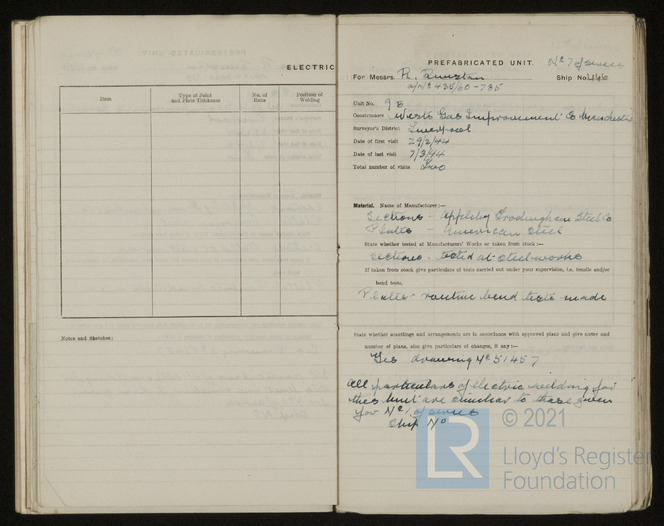 ELECTRIC
Item
Type of Joint and Plate Thickness
No. of Runs
Position of Welding
Notes and Sketches:
No 7 of series
PREFABRICATED UNIT.
For Messrs. R. Dunston Ship No.
o/No 435/60-735
Unit No. 9B
Constructors Wests Gas Improvement Co Manchester
Surveyor's District Liverpool
Date of first visit 29/2/44
Date of last visit 7/3/44
Total number of visits Two
Material. Name of Manufacturer:—
Sections - Appleby Frodingham Steel Co
Plates - American Steel
State whether tested at Manufacturers' Works or taken from stock:—
Sections - tested at steelworks
If taken from stock give particulars of tests carried out under your supervision, i.e. tensile and/or
bend tests.
Plates - routine bend tests made
State whether scantlings and arrangements are in accordance with approved plans and give name and
number of plans, also give particulars of changes, if any:—
Yes drawing No 51457
All particulars of electric welding for
this unit are similar to those given
for No 1 of series
Ship No
LR
© 2021
Lloyd's Register
Foundation